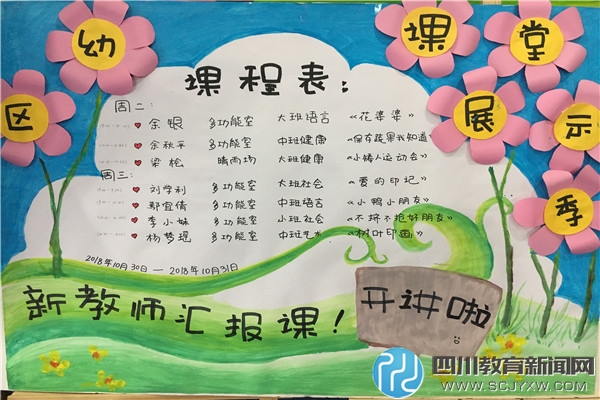 幼 课堂
区 展示
季
课程表:
周二:
余银 多功能室 大班语言 《花婆婆》
余秋平 多功能室 中班健康 《保存蔬果我知道》
梁松 晴雨场 大班健康 《小矮人运动会》
周三:
刘学利 多功能室 大班社会 《爱的印记》
邹宜倩 多功能室 中班语言 《小鸭小朋友》
李小妹 多功能室 小班社会 《不哭不抢好朋友》
杨梦瑶 多功能室 中班艺术 《树叶印画》
2018年10月30日—2018年10月31日
新教师汇报课!
开讲啦
四川教育新闻网
WWW.SCJYXW.COM